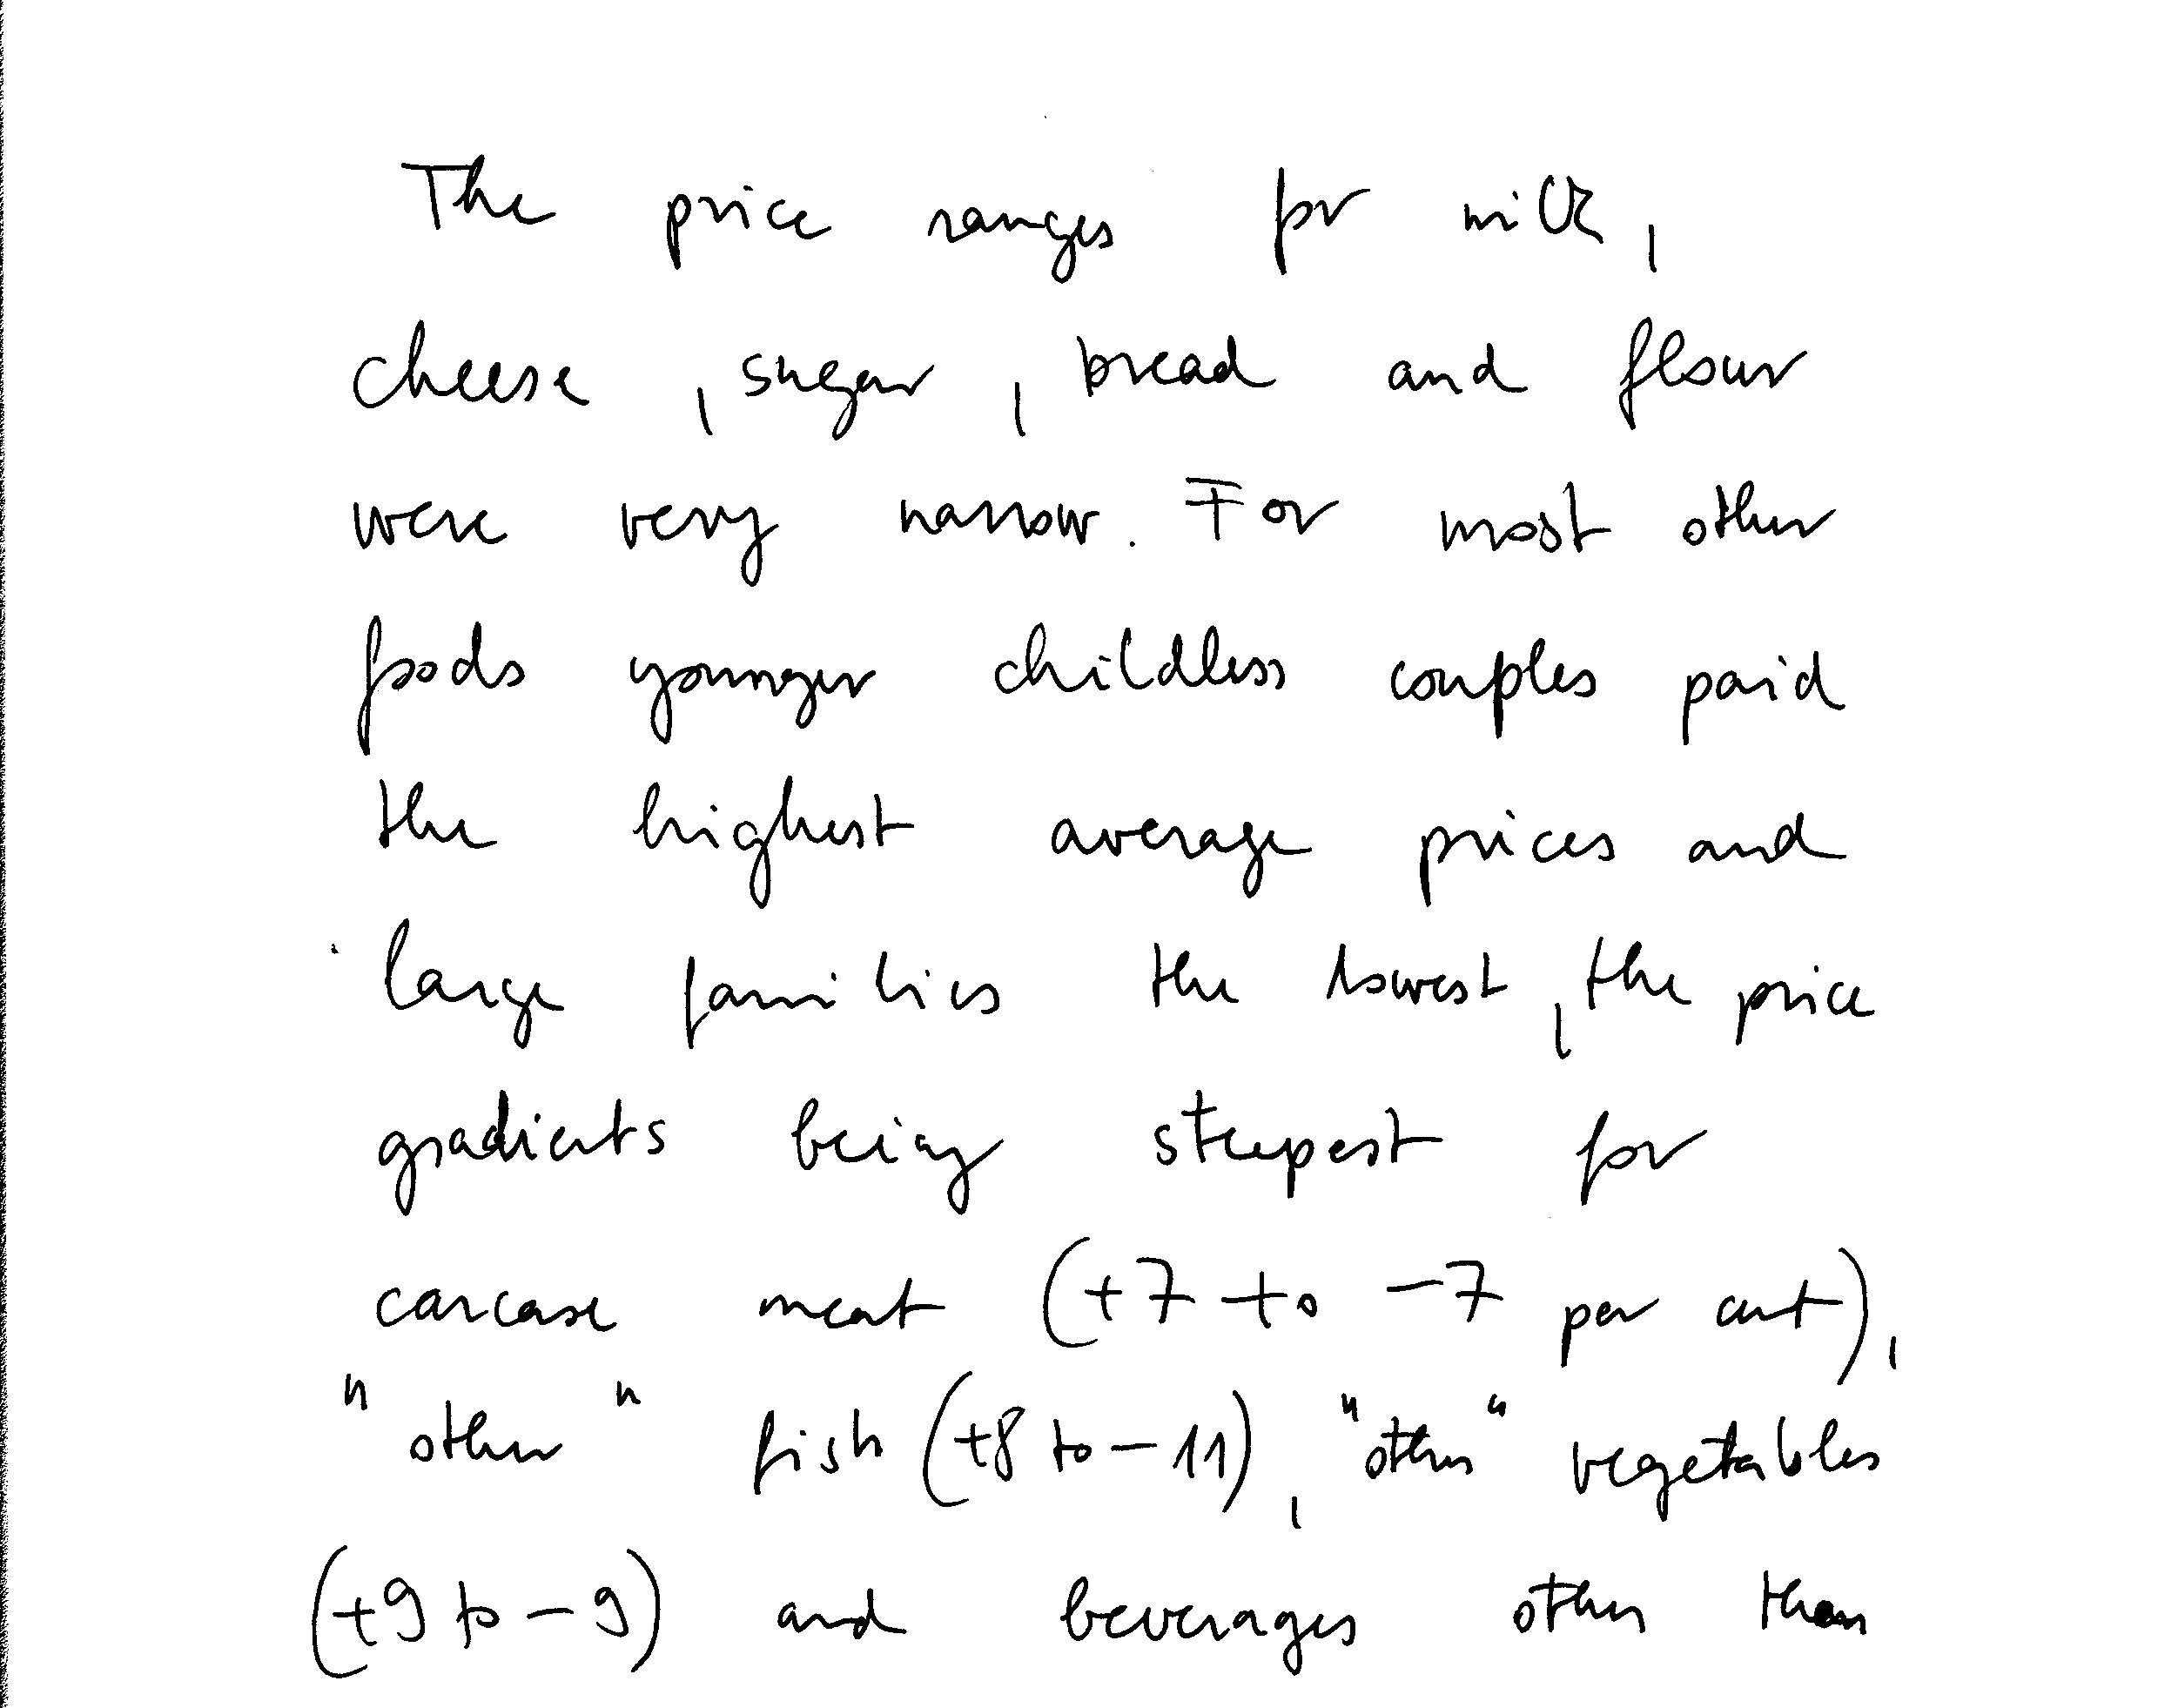 The price ranges for milk,
cheese, sugar, bread and flour
were very narrow. For most other
foods younger childless couples paid
the highest average prices and
large families the lowest, the price
gradients being steepest for
carcase meat (+7 to -7 per cent),
"other" fish (+8 to -11), "other" vegetables
(+9 to -9) and beverages other than